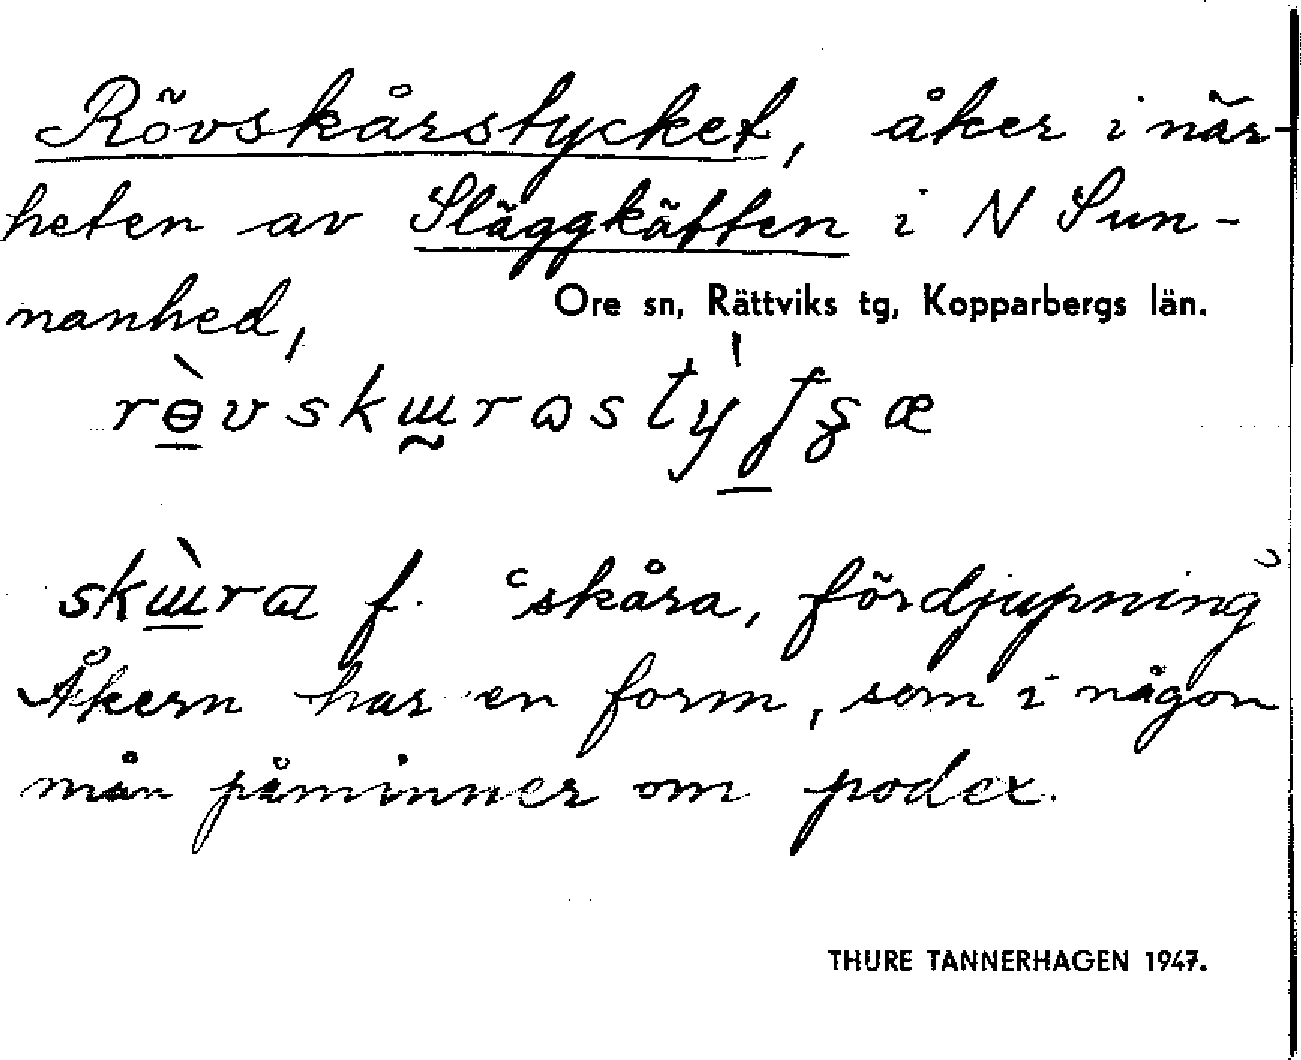 Rövskårstycket, åker i när-
heten av Släggkäften i N Sun-
nanhed,
Ore sn, Rättviks tg, Kopparbergs län.
f. "skåra, fördjupning"
Åkern har en form, som i någon
mån påminner om podex.
THURE TANNERHAGEN 1947.